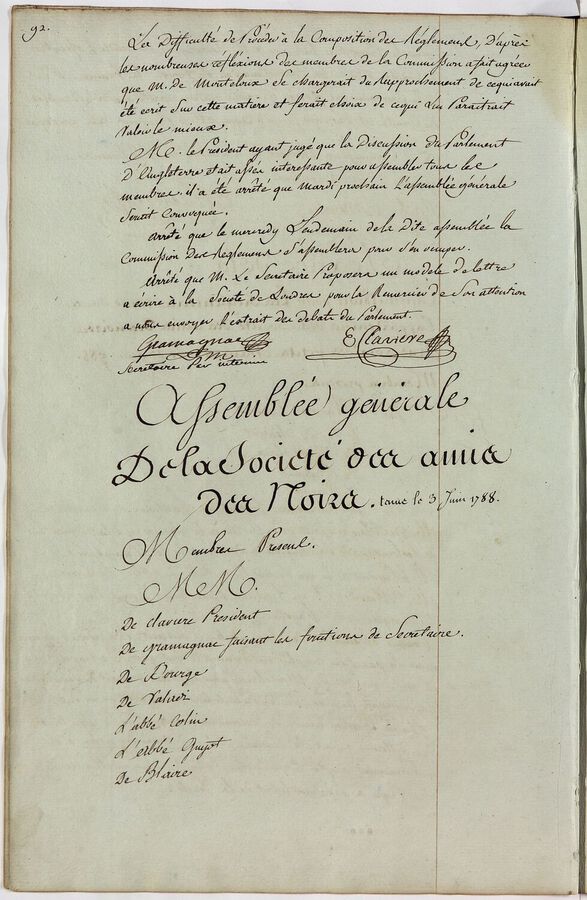 92.
La Difficulté de Procéder à la Composition des Reglemens, D'après
les nombreuses réfléxions des membres de la Commission a fait agréer
que M. De Monteloux se chargerait du Rapprochement de ce qui avait
été ecrit sur cette matiere et ferait choix de ce qui Lui Paraitrait
Valoir le mieux.
M. le President ayant jugé que la Discussion du Parlement
D'Angleterre était assés interessante pour assembler tous les
membres, il a été arrêté que Mardi prochain L'assemblée générale
Serait Convoquée.
Arrêté que le mercredy Lendemain de la Dite assemblée la
Commission Des Reglemens S'assemblera pour s'en occuper.
Arrêté que M. Le Secretaire Proposera un modele de lettre
a ecrire à la Societé de Londres pour la Remercier de Son attention
a nous envoyer L'extrait des debats du Parlement.
Gramagnac
E Claviere
Secretaire Par interim
Assemblée générale
De la Societé des amis
des Noirs. tenue le 3 Juin 1788.
Membres Presens.
MM.
De claviere President
De gramagnac faisant les fonctions de Secretaire.
De Bourge
De Valadi
L'abbé Colin
L'abbé Guyot
De Blaire